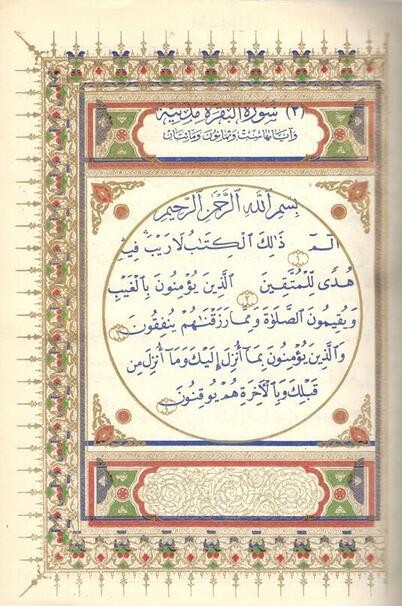 (٢) سُورَةُ البَقَرَةِ مَدَنِيَّة
وَآيَاتُهَا سِتٌّ وَثَمَانُونَ وَمِائَتَانِ
بِسْمِ اللهِ الرَّحْمٰنِ الرَّحِيمِ
الٓمٓ ١ ذَٰلِكَ الْكِتَٰبُ لَا رَيْبَ فِيهِ
هُدًى لِّلْمُتَّقِينَ ٢ الَّذِينَ يُؤْمِنُونَ بِالْغَيْبِ
وَيُقِيمُونَ الصَّلَوٰةَ وَمِمَّا رَزَقْنَٰهُمْ يُنفِقُونَ ٣
وَالَّذِينَ يُؤْمِنُونَ بِمَا أُنزِلَ إِلَيْكَ وَمَا أُنزِلَ مِن
قَبْلِكَ وَبِالْأَخِرَةِ هُمْ يُوقِنُونَ ٤